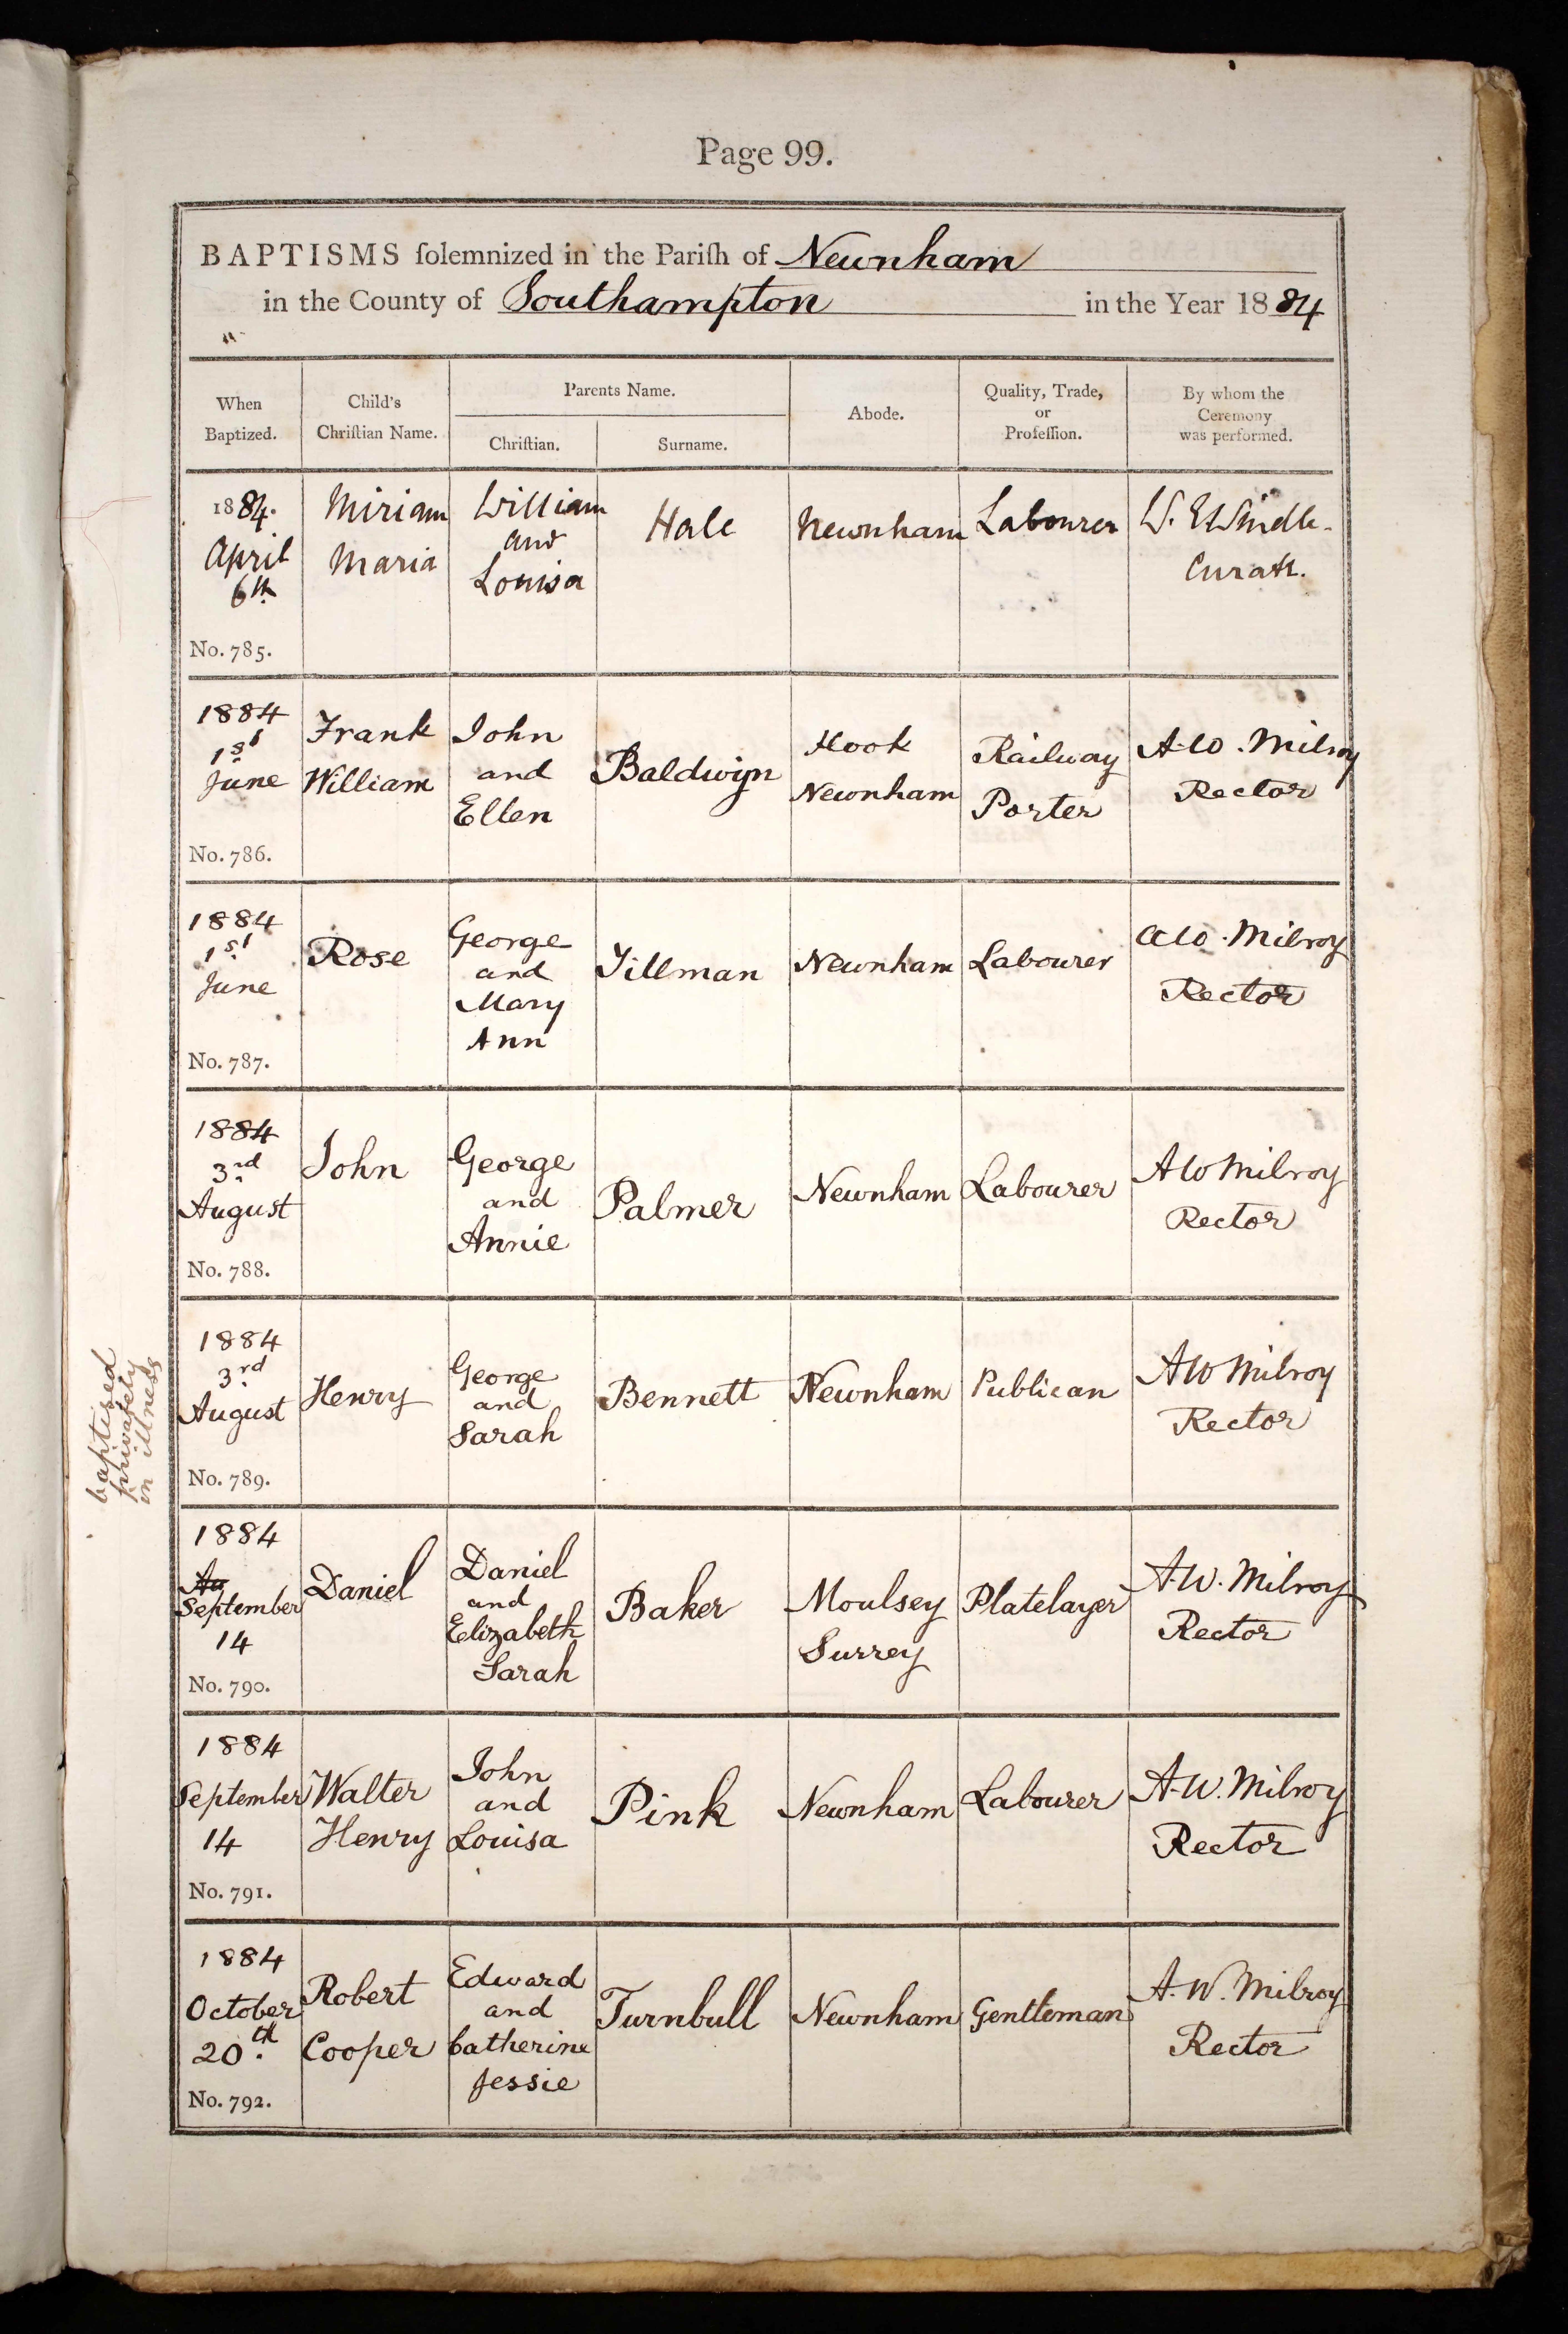 Page 99.
BAPTISMS ſolemnized in the Pariſh of Newnham
in the County of Southampton in the Year 1884
When
Baptized.
Child's
Chriſtian Name.
Parents Name.
Chriſtian.
Surname.
Abode.
Quality, Trade,
or
Profeſſion.
By whom the
Ceremony
was performed.
1884.
April
6th
No. 785.
Miriam
Maria
William
and
Louisa
Hale
Newnham
Labourer
W. E
Curate.
1884
1st
June
No. 786.
Frank
William
John
and
Ellen
Baldwyn
Hook
Newnham
Railway
Porter
A.W. Milroy
Rector
1884
1st
June
No. 787.
Rose
George
and
Mary
Ann
Tillman
Newnham
Labourer
AW. Milroy
Rector
1884
3rd
August
No. 788.
John
George
and
Annie
Palmer
Newnham
Labourer
AW Milroy
Rector
baptised
privately
in illness
1884
3rd
August
No. 789.
Henry
George
and
Sarah
Bennett
Newnham
Publican
AW Milroy
Rector
1884
Au
September
14
No. 790.
Daniel
Daniel
and
Elizabeth
Sarah
Baker
Moulsey
Surrey
Platelayer
A.W. Milroy
Rector
1884
September
14
No. 791.
Walter
Henry
John
and
Louisa
Pink
Newnham
Labourer
A.W. Milroy
Rector
1884
October
20th
No. 792.
Robert
Cooper
Edward
and
Catherine
Jessie
Turnbull
Newnham
Gentleman
A.W. Milroy
Rector